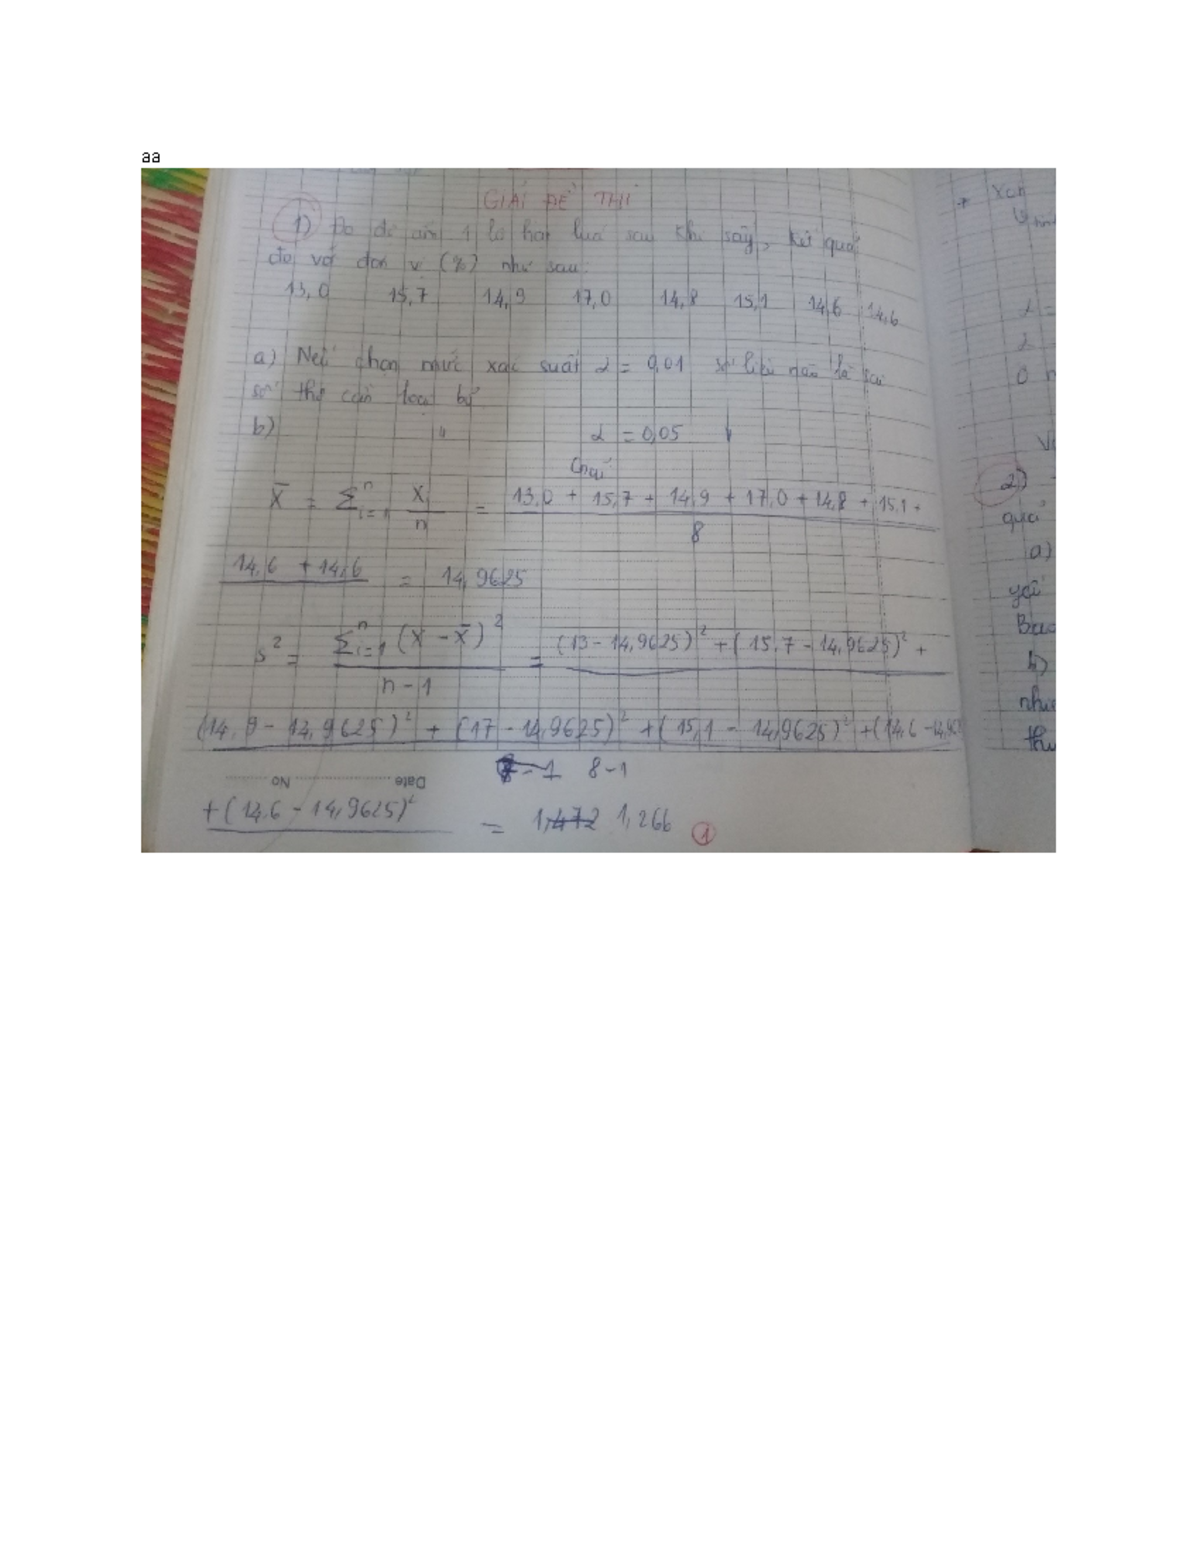 aa
GIẢI ĐỀ THI
1) Đo độ ẩm 1 lô hạt lúa sau khi sấy, kết quả
đo với đơn vị (%) như sau:
13,0 15,7 14,9 17,0 14,8 15,1 14,6 14,6
a) Nếu chọn mức xác suất α = 0,01 số liệu nào là sai
số thô cần loại bỏ
b) " α = 0,05
Giải
x̄ = Σⁿᵢ₌₁ x/n = 13,0 + 15,7 + 14,9 + 17,0 + 14,8 + 15,1 +
8
14,6 + 14,6 = 14,9625
s² = Σⁿᵢ₌₁ (x - x̄)² = (13 - 14,9625)² + (15,7 - 14,9625)² +
n - 1
(14,9 - 14,9625)² + (17 - 14,9625)² + (15,1 - 14,9625)² + (14,6 - 14,96
8 - 1
Date No
+ (14,6 - 14,9625)² = 1,472 1,266 1
+ Xar
2)
quả
a)
b)